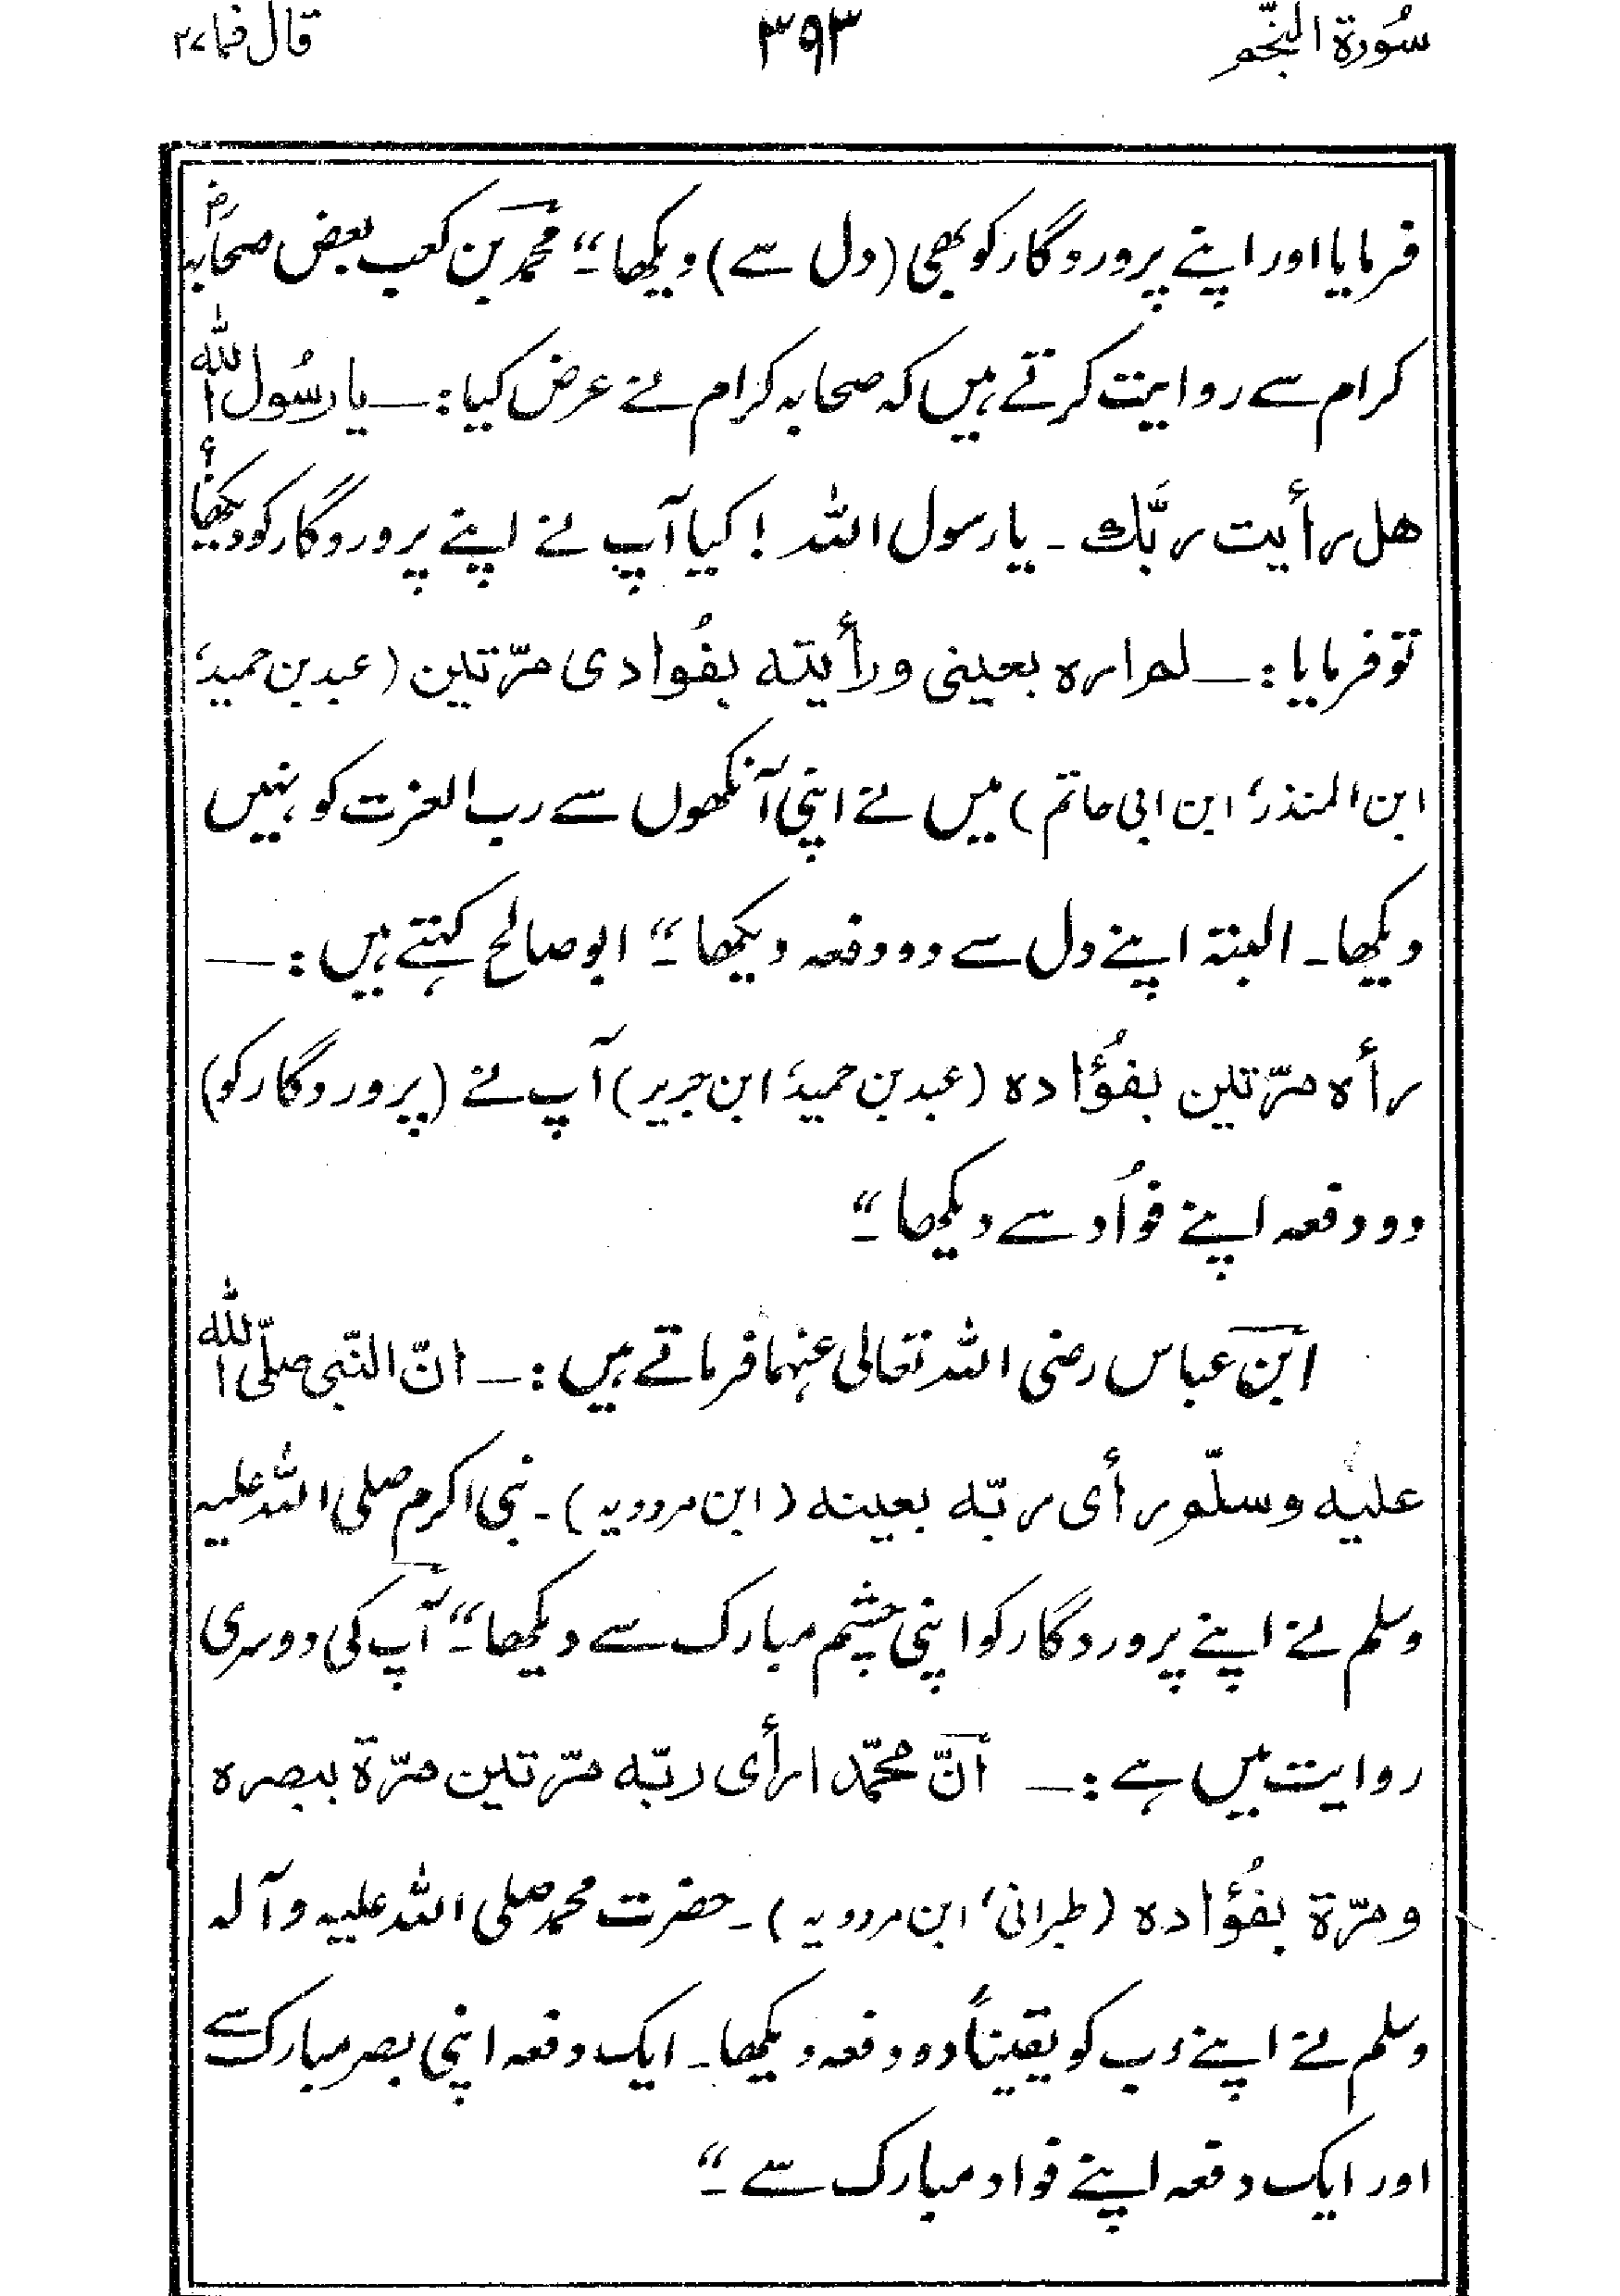 سُورۃ النّجم ۳۹۳ قال فما ۲۷
فرمایا اور اپنے پروردگار کو بھی (دل سے) دیکھا۔“ محمد بن کعب بعض صحابہؓ
کرام سے روایت کرتے ہیں کہ صحابہ کرام نے عرض کیا :ــ یا رسُول اللہ
ھل رأیت ربّک ۔ یا رسول اللہ ! کیا آپ نے اپنے پروردگار کو دیکھا؟
تو فرمایا :ــ لم ارہ بعینی ورأیتہ بفُوادی مرّتین (عبد بن حمید،
ابن المنذر، ابن ابی حاتم) میں نے اپنی آنکھوں سے رب العزت کو نہیں
دیکھا۔ البتہ اپنے دل سے دو دفعہ دیکھا۔“ ابو صالح کہتے ہیں :ــ
رأہ مرّتین بفُؤادہ (عبد بن حمید، ابن جریر) آپ نے (پروردگار کو)
دو دفعہ اپنے فوأُد سے دیکھا۔“
ابن عباس رضی اللہ تعالی عنہما فرماتے ہیں :ــ انّ النّبی صلّی اللہ
علیہ وسلّم رأی ربّہ بعینہ (ابن مردویہ)۔ نبی اکرم صلی اللہ علیہ
وسلم نے اپنے پروردگار کو اپنی چشم مبارک سے دیکھا۔“ آپ کی دوسری
روایت میں ہے :ــ أنّ محمّدا رأی ربّہ مرّتین مرّۃ ببصرہ
ومرّۃ بفُؤادہ (طبرانی، ابن مردویہ)۔ حضرت محمد صلی اللہ علیہ وآلہ
وسلم نے اپنے رب کو یقیناً دو دفعہ دیکھا۔ ایک دفعہ اپنی بصر مبارک سے
اور ایک دفعہ اپنے فواد مبارک سے۔“